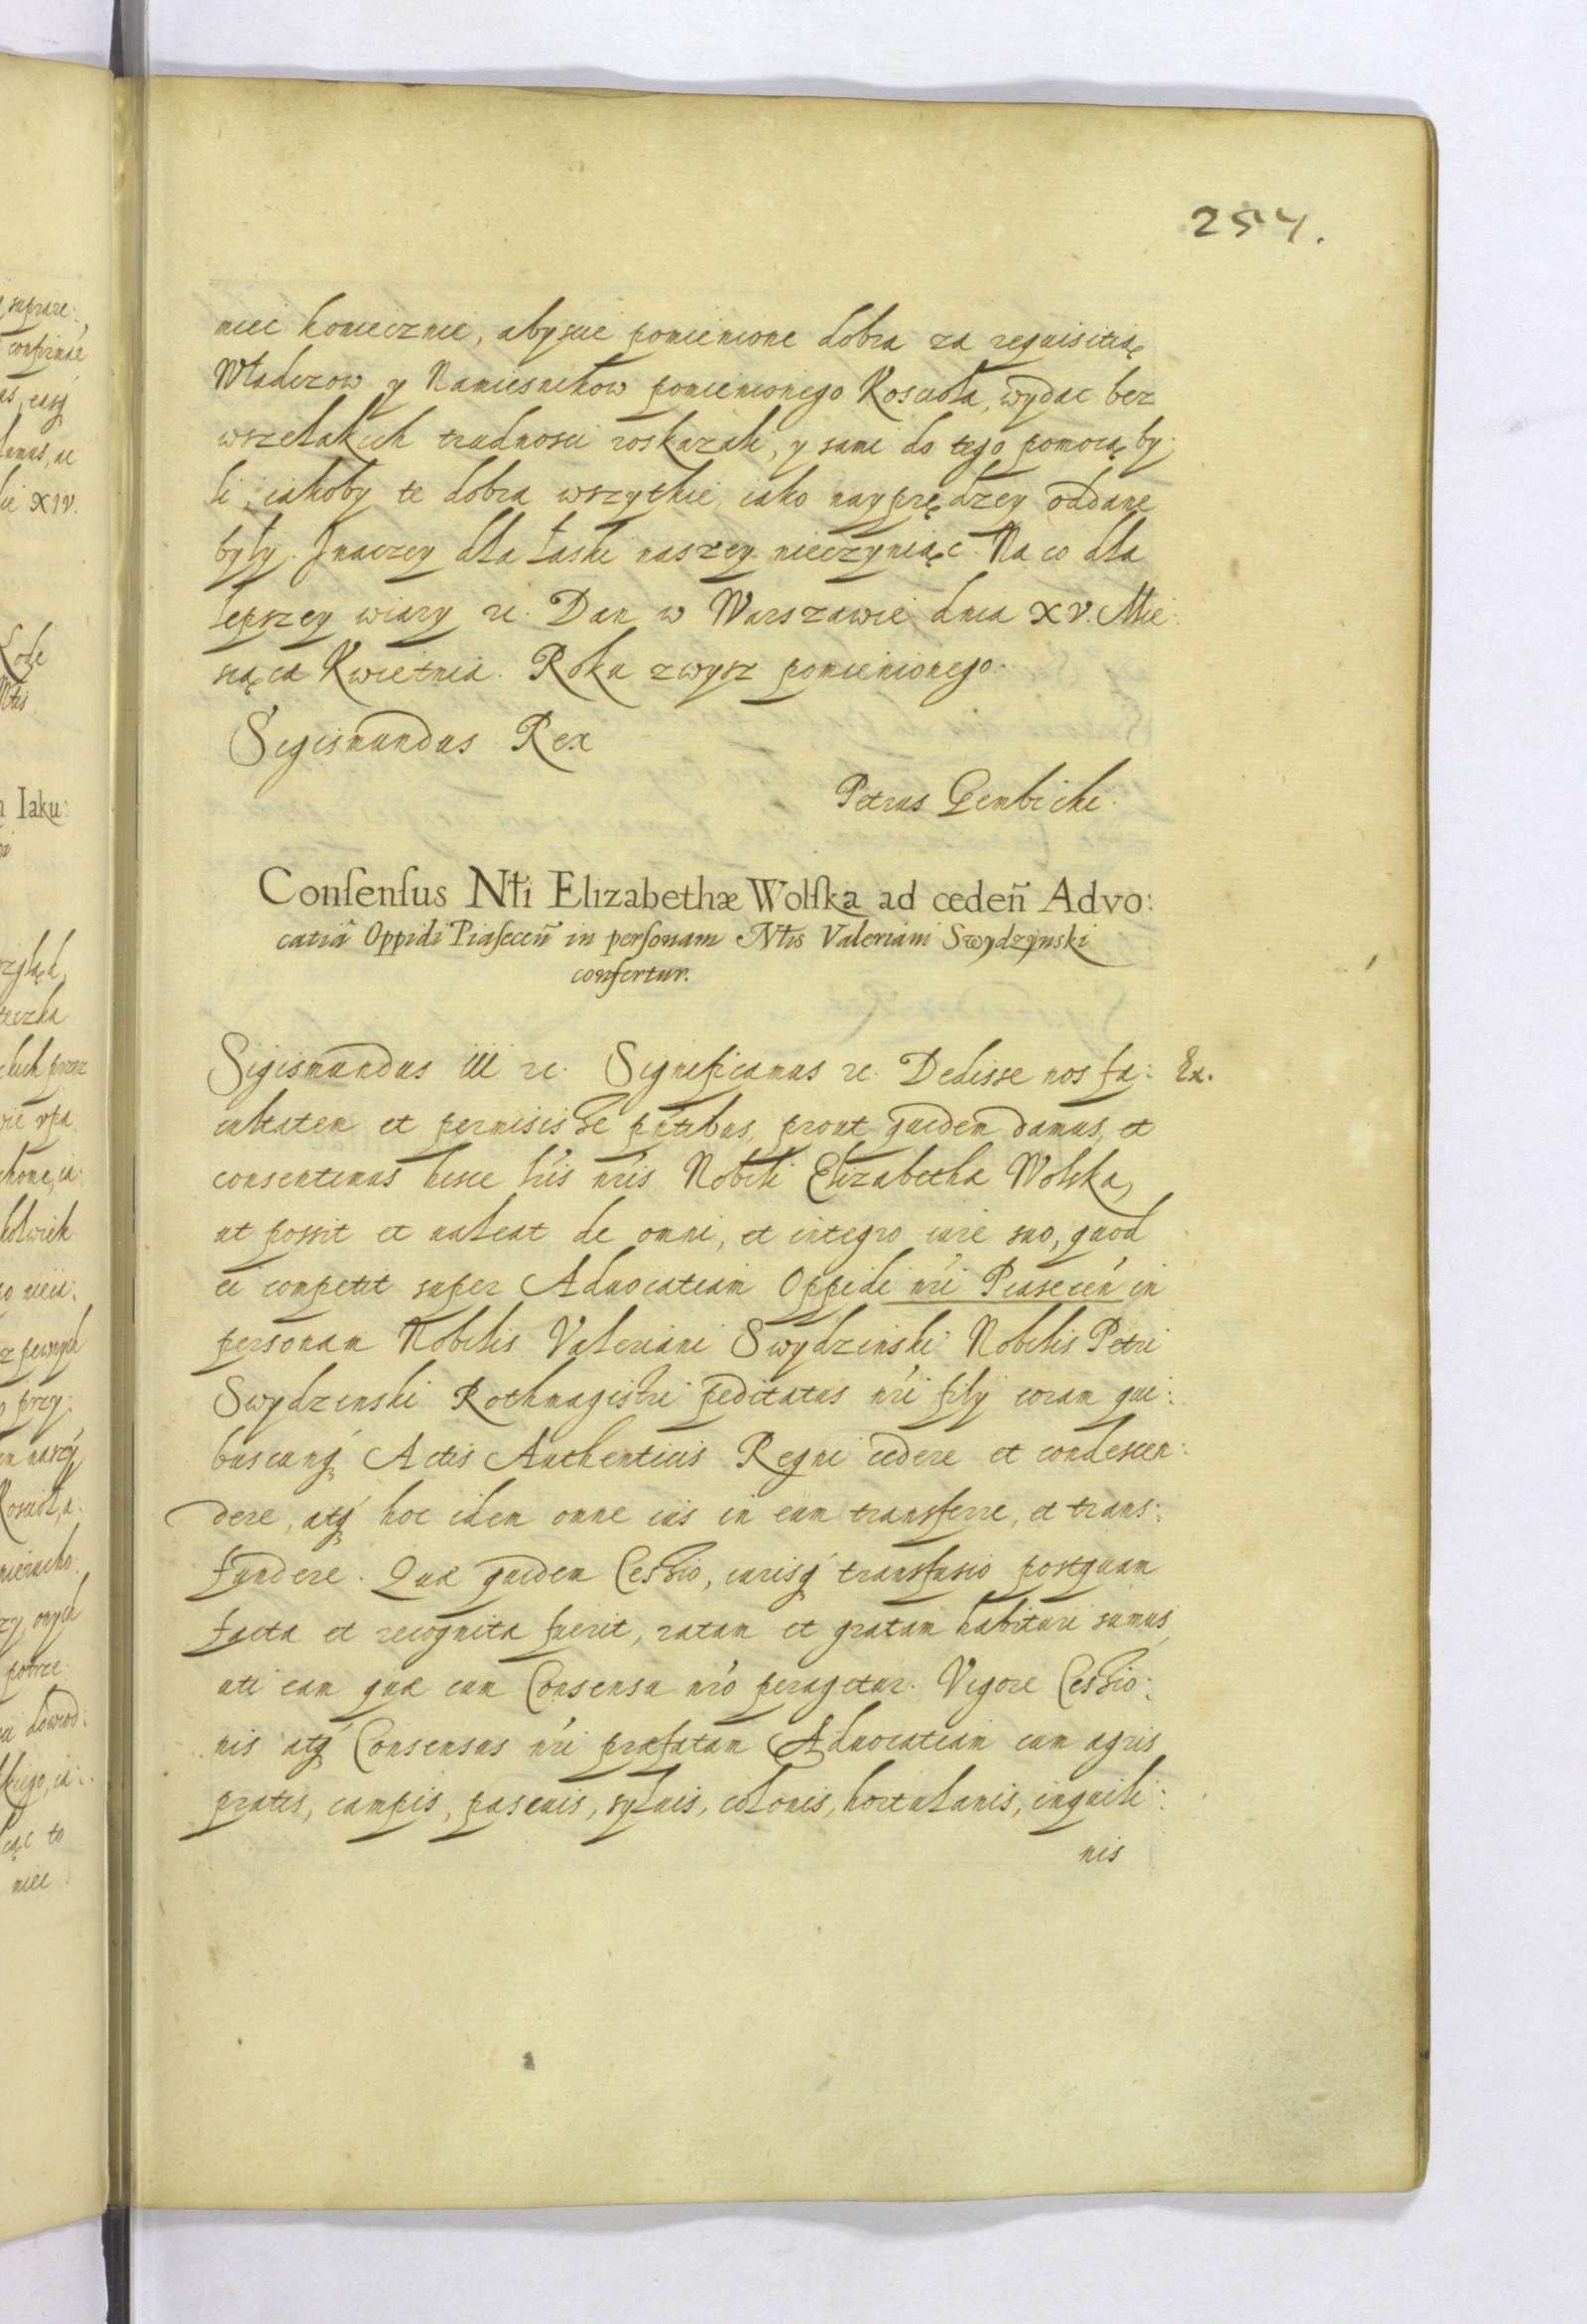 254.
niec koniecznie, abyscie pomienione dobra za requisitią
Władzow y Namiesnikow pomienionego Kosciola, wydac bez
wszelakich trudnosci roskazali, y sami do tego pomocą by:
li, iakoby te dobra wszytkie, iako nayprędzey oddane
były. Inaczey dla łaski naszey nieczyniąc. Na co dla
lepszey wiary rc. Dan w Warszawie, dnia XV. Mie:
siąca Kwietnia. Roku zwysz pomienionego.
Sigismundus Rex
Petrus Gembicki.
Consensus Nłi Elizabethæ Wolska ad cedeñ Advo:
catiã Oppidi Piaseceñ in personam Nłis Valeriani Swydzynski
confertur.
Sigismundus III rc. Significamus rc. Dedisse nos fa: Ex.
cultatem et permisisse pñtibus, prout quidem damus, et
consentimus hisce lr̃is nr̃is Nobili Elizabetha Wolska,
ut possit et ualeat de omni, et integro iure suo, quod
ei competit super Aduocatiam Oppidi nr̃i Piaseceñ in
personam Nobilis Valeriani Swydzinski Nobilis Petri
Swydzinski Rothmagistri peditatus nr̃i filij coram qui:
buscunq̃ Actis Authenticis Regni cedere et condescen:
dere, atq̃ hoc idem omne ius in eum transferre, et trans:
fundere. Quæ quidem Cessio, iurisq̃ transfusio postquam
facta et recognita fuerit, ratam et gratam habituri sumus,
uti eam quæ cum Consensu nr̃o peragetur. Vigore Cessio:
nis atq̃ Consensus nr̃i præfatam Aduocatiam cum agris
pratis, campis, pascuis, syluis, colonis, hortulanis, inquili:
nis